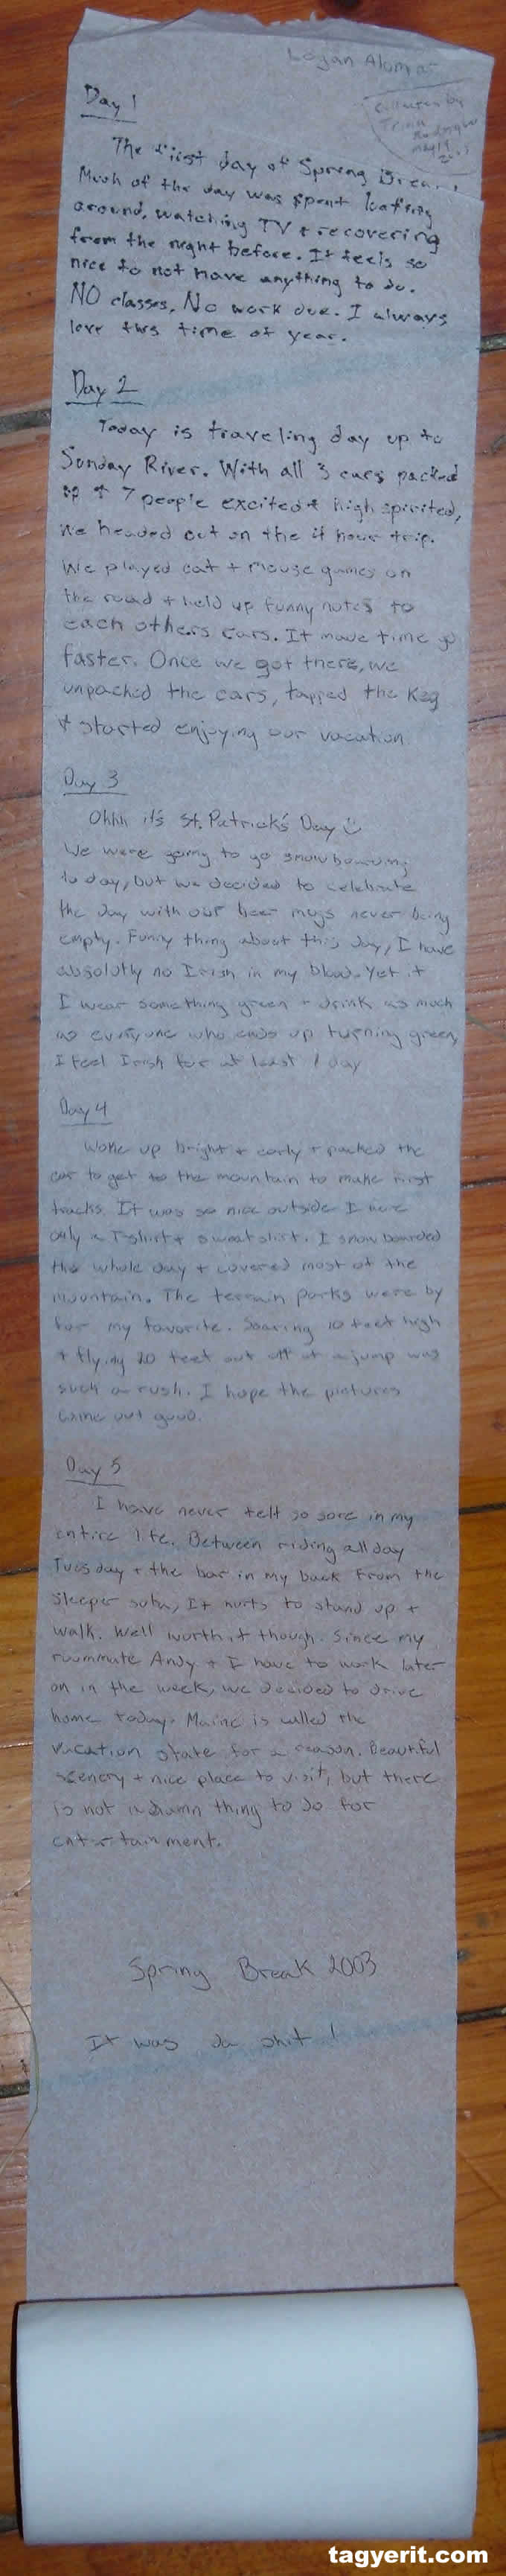 Logan
Collected by
Trina
May 19
2003
Day 1
The first day of Spring Break.
Much of the day was spent loafing
around, watching TV + recovering
from the night before. It feels so
nice to not have anything to do.
NO classes, No work due. I always
love this time of year.
Day 2
Today is traveling day up to
Sunday River. With all 3 cars packed
up + 7 people excited + high spirited,
we headed out on the 4 hour trip.
We played cat + mouse games on
the road + held up funny notes to
each others cars. It made time go
faster. Once we got there, we
unpacked the cars, tapped the Keg
+ started enjoying our vacation
Day 3
Ohhh it's St. Patrick's Day
We were going to go snowboarding
today, but we decided to celebrate
the day with our beer mugs never being
empty. Funny thing about this day, I have
absolutly no Irish in my blood. Yet if
I wear something green + drink as much
as everyone who ends up turning green,
I feel Irish for at least 1 day
Day 4
Woke up bright + early + packed the
car to get to the mountain to make first
tracks. It was so nice outside I wore
only a T-shirt + sweatshirt. I snowboarded
the whole day + covered most of the
mountain. The terrain parks were by
far my favorite. Soaring 10 feet high
+ flying 20 feet out off of a jump was
such a rush. I hope the pictures
come out good.
Day 5
I have never felt so sore in my
entire life. Between riding all day
Tuesday + the bar in my back from the
sleeper sofa, It hurts to stand up +
walk. Well worth it though. Since my
roommate Andy + I have to work later
on in the week, we decided to drive
home today. Maine is called the
vacation state for a reason. Beautiful
scenery + nice place to visit, but there
is not a damn thing to do for
entertainment.
Spring Break 2003
It was da shit!
tagyerit.com